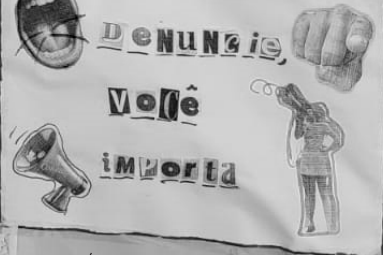 DeNuNcie,
Você
imPorta